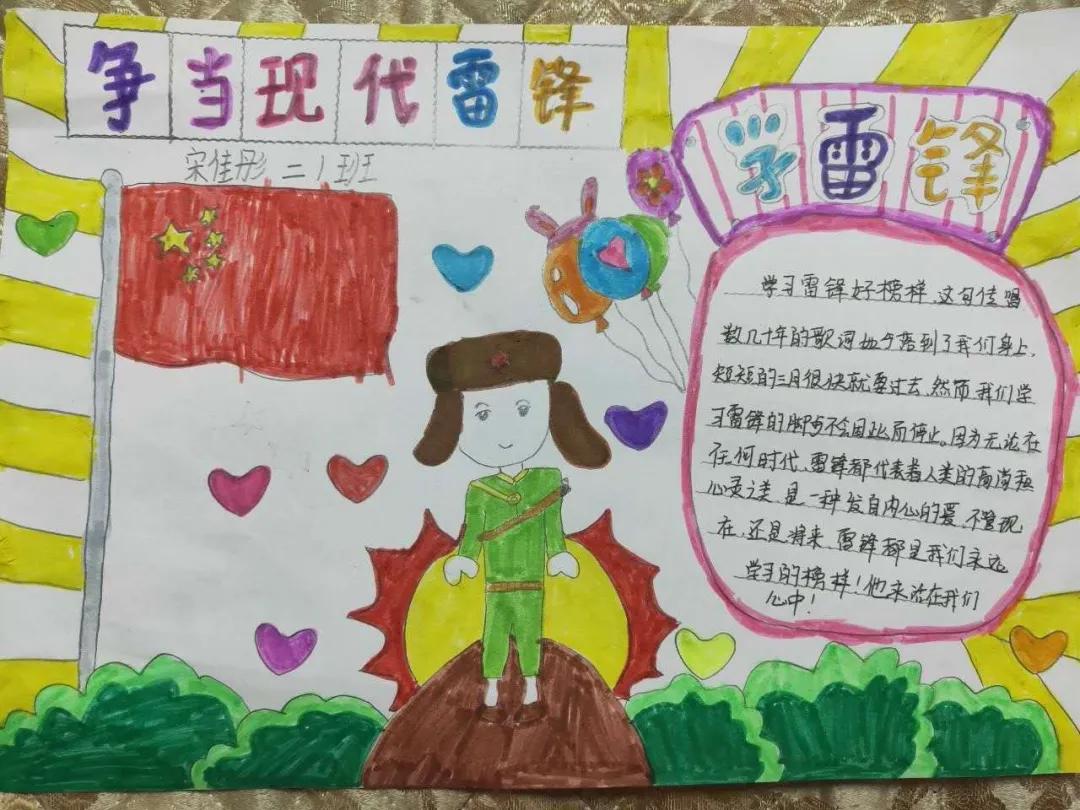 争当现代雷锋
宋佳彤 二1班
学雷锋
学习雷锋好榜样,这句传唱
数几十年的歌词如今落到了我们身上,
短短的三月很快就要过去,然而我们学
习雷锋的脚步不会因此而停止。因为无论在
任何时代,雷锋都代表着人类的高尚和
心灵之美,是一种发自内心的爱,不管现
在,还是将来,雷锋都是我们永远
学习的榜样!他永活在我们
心中!